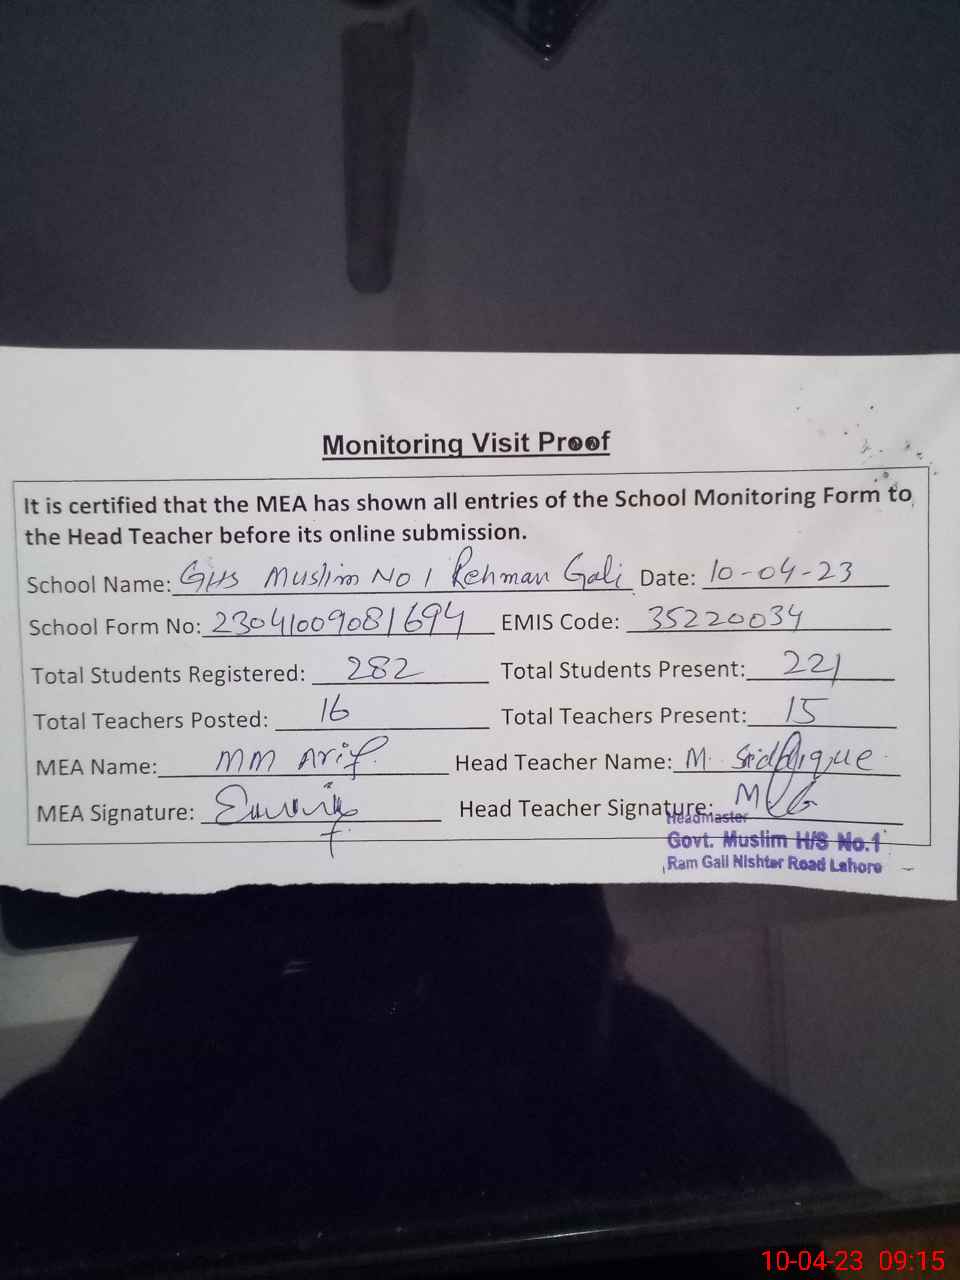 Monitoring Visit Proof
It is certified that the MEA has shown all entries of the School Monitoring Form to
the Head Teacher before its online submission.
School Name: GHS Muslim No 1 Rehman Gali Date: 10-04-23
School Form No: 23041009081694 EMIS Code: 35220034
Total Students Registered: 282 Total Students Present: 221
Total Teachers Posted: 16 Total Teachers Present: 15
MEA Name: MM Arif Head Teacher Name: M. Siddique
MEA Signature: Head Teacher Signature:
Headmaster
Govt. Muslim H/S No.1
Ram Gali Nishter Road Lahore
10-04-23 09:15